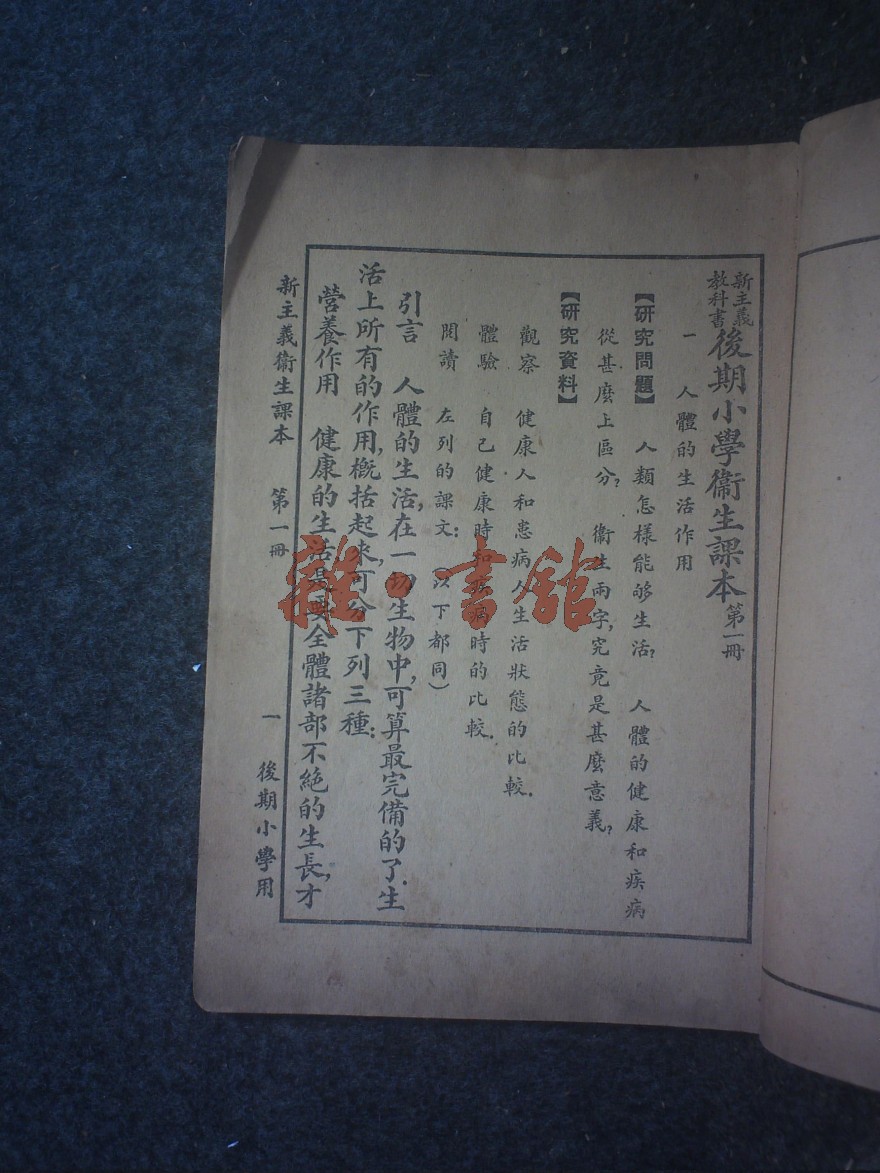 新主義教科書後期小學衞生課本第一冊
一 人體的生活作用
【研究問題】 人類怎樣能够生活? 人體的健康和疾病
從甚麽上區分? 衞生兩字,究竟是甚麽意義?
【研究資料】
觀察 健康人和患病人生活狀態的比較.
體驗 自己健康時和疾病時的比較.
閱讀 左列的課文:(以下都同)
引言 人體的生活,在一切生物中,可算最完備的了.生
活上所有的作用,概括起來,可分下列三種:
營養作用 健康的生活,是要全體諸部不絶的生長,才
新主義衞生課本 第一冊 一 後期小學用
雜·書館